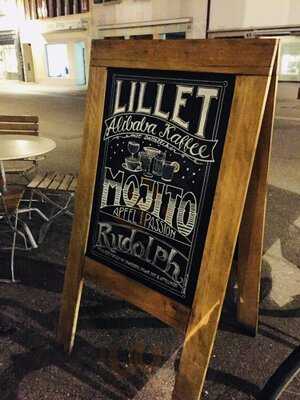 LILLET
Alibaba Kaffee
MOJITO
APFEL | PASSION
Rudolph